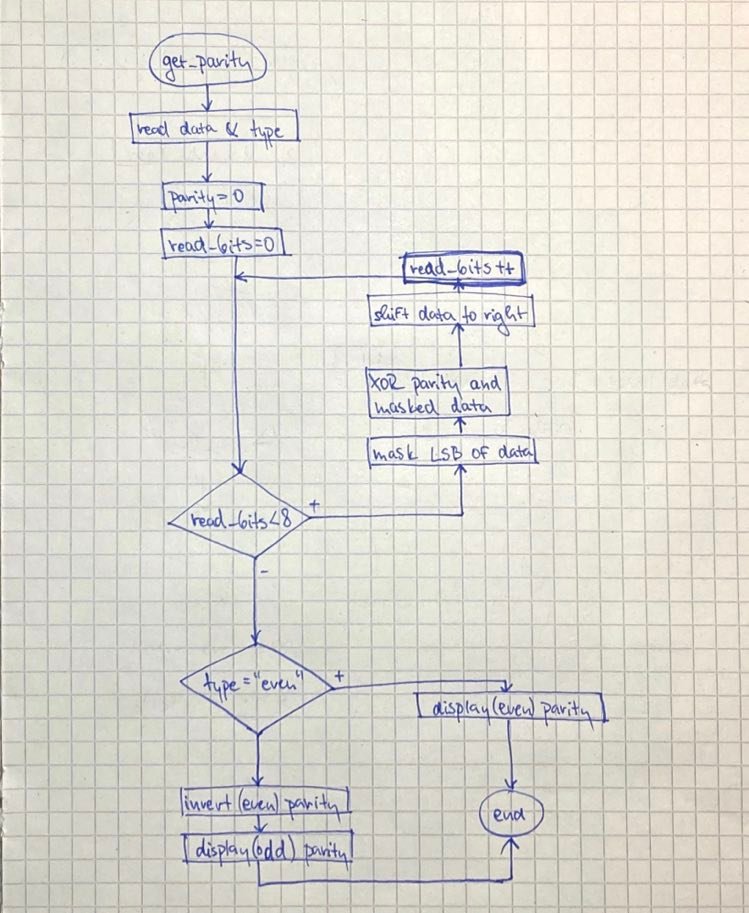 get_parity
read data & type
parity=0
read_bits=0
read_bits++
shift data to right
XOR parity and
masked data
mask LSB of data
read_bits<8
+
-
type="even"
+
display(even) parity
invert (even) parity
display(odd) parity
end